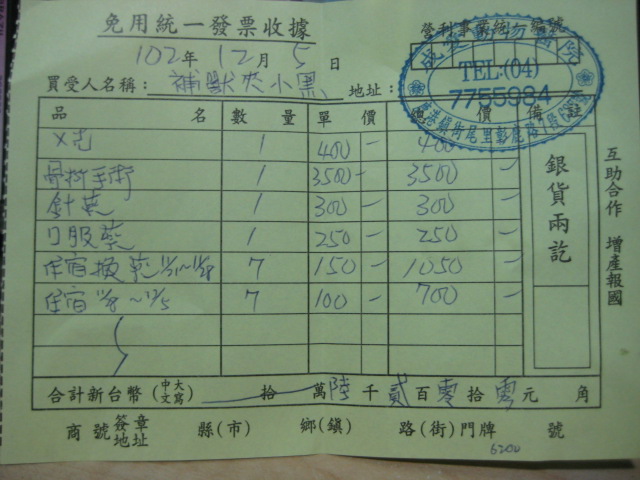 免用統一發票收據
營利事業統一編號
102年 12月 5日
TEL:(04)
7755984
買受人名稱：補獸夾小黑 地址：
品名 數量 單價 總價 備註
X光 1 400 — 400
骨折手術 1 3500 — 3500 —
針藥 1 300 — 300 —
口服藥 1 250 — 250 —
住宿換藥 7 150 — 1050 —
住宿 ~12/5 7 100 — 700 —
銀貨兩訖
互助合作 增產報國
合計新台幣(中文大寫) 拾 萬 陸 千 貳 百 零 拾 零 元 角
商號簽章地址 縣(市) 鄉(鎮) 路(街)門牌 號
6200